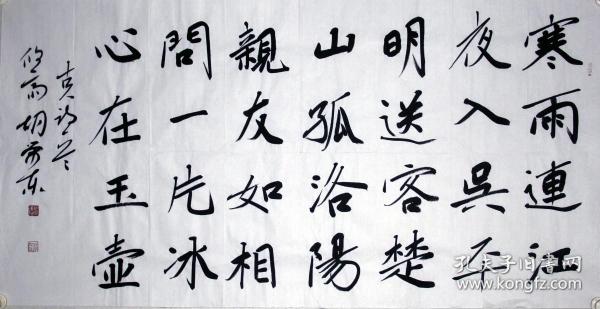 寒雨連江
夜入吳平
明送客楚
山孤洛陽
親友如相
問一片冰
心在玉壺
孔夫子旧书网
www.kongfz.com